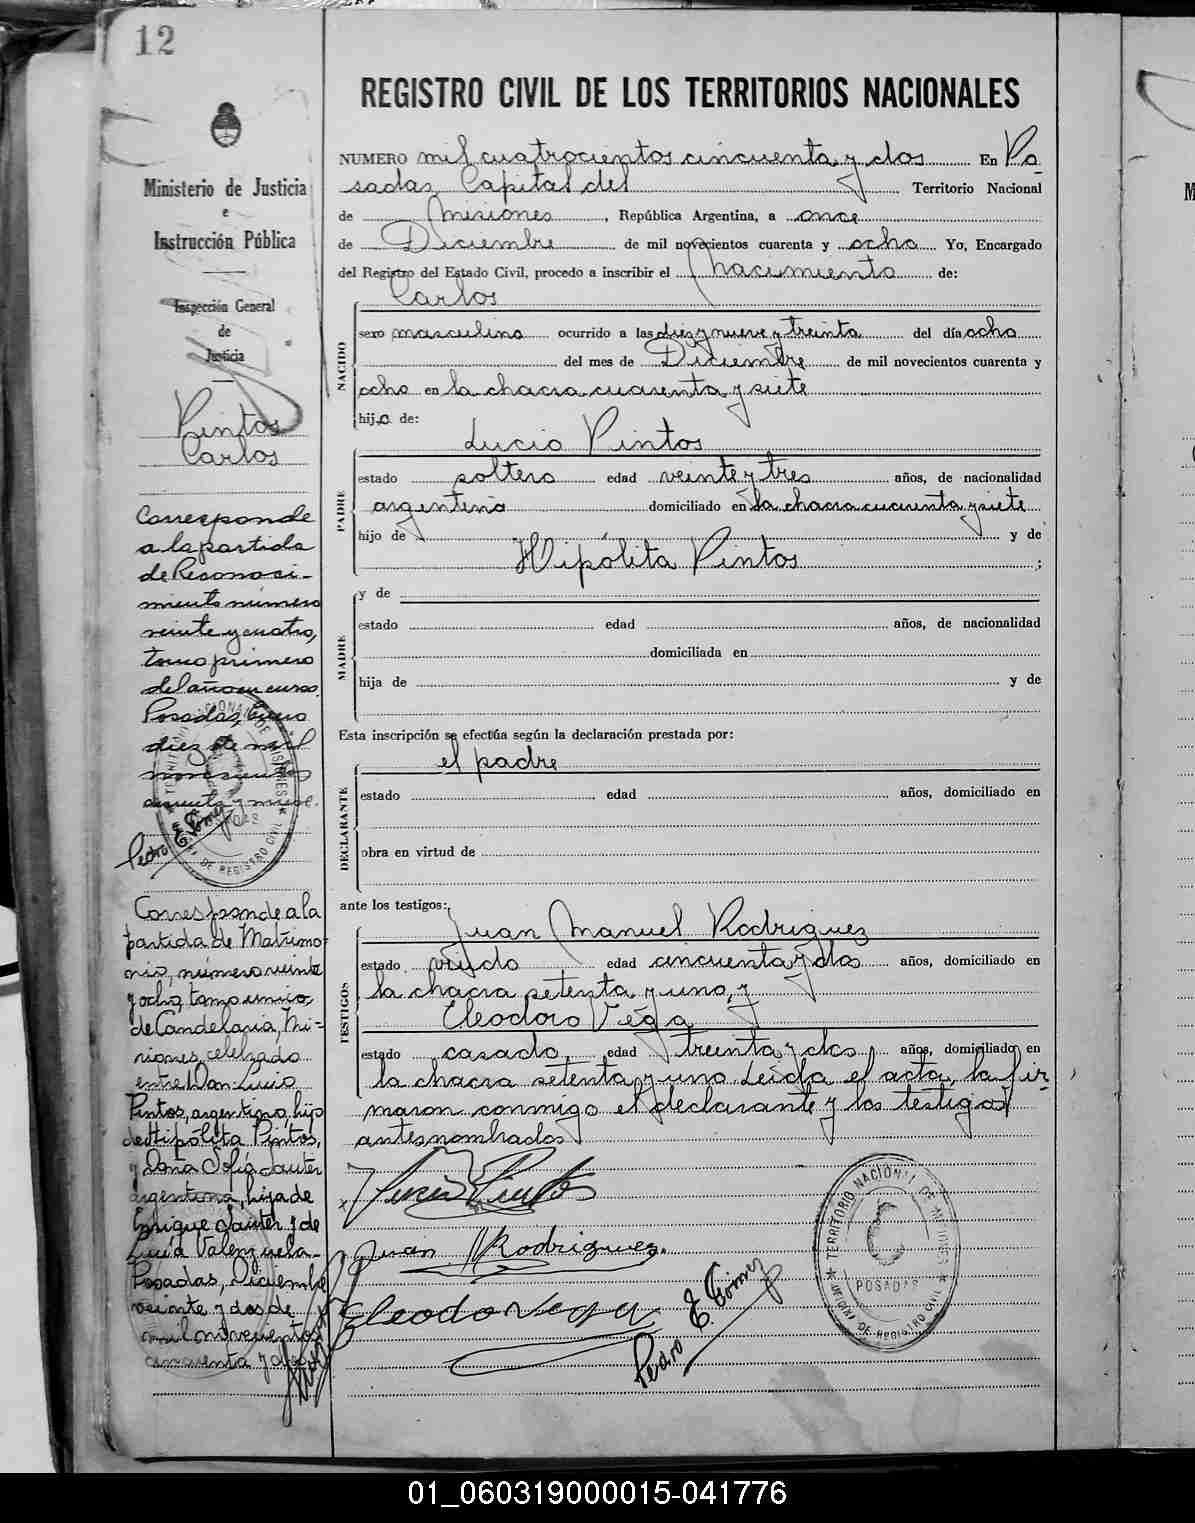 12
REGISTRO CIVIL DE LOS TERRITORIOS NACIONALES
Ministerio de Justicia
e
Instrucción Pública
Inspección General
de
Justicia
Pintos
Carlos
Corresponde
a la partida
de Reconoci-
miento número
veinte y cuatro,
tomo primero
del año en curso.
Posadas, Enero
diez de mil
novecientos
cuarenta y nueve.
Pedro E. Gómez
Corresponde a la
partida de Matrimo-
nio, número veinte
y ocho, tomo unico,
de Candelaria, Mi-
siones, celebrado
entre Don Lucio
Pintos, argentino, hijo
de Hipólita Pintos,
y Doña Sofía Sauter
argentina, hija de
Enrique Sauter y de
Lucía Valenzuela.-
Posadas, Diciembre
veinte y dos de
mil novecientos
cincuenta y dos
NUMERO mil cuatrocientos cincuenta y dos En Po-
sadas Capital del Territorio Nacional
de Misiones, República Argentina, a once
de Diciembre de mil novecientos cuarenta y ocho Yo, Encargado
del Registro del Estado Civil, procedo a inscribir el Nacimiento de:
Carlos
NACIDO
sexo masculino ocurrido a las diez y nueve y treinta del día ocho
del mes de Diciembre de mil novecientos cuarenta y
ocho en la chacra cuarenta y siete
hijo de:
Lucio Pintos
PADRE
estado soltero edad veinte y tres años, de nacionalidad
argentino domiciliado en la chacra cuarenta y siete
hijo de y de
Hipólita Pintos ;
MADRE
y de
estado edad años, de nacionalidad
domiciliada en
hija de y de
Esta inscripción se efectúa según la declaración prestada por:
el padre
DECLARANTE
estado edad años, domiciliado en
obra en virtud de
ante los testigos:
Juan Manuel Rodriguez
TESTIGOS
estado viudo edad cincuenta y dos años, domiciliado en
la chacra setenta y uno, y
Eleodoro Vega
estado casado edad treinta y dos años, domiciliado en
la chacra setenta y uno Leida el acta, la fir-
maron conmigo el declarante y los testigos
antes nombrados
Lucio Pintos
Juan M Rodriguez.
Eleodoro Vega
Pedro E. Gómez
TERRITORIO NACIONAL DE MISIONES
POSADAS
OFICINA DE REGISTRO CIVIL
01_060319000015-041776